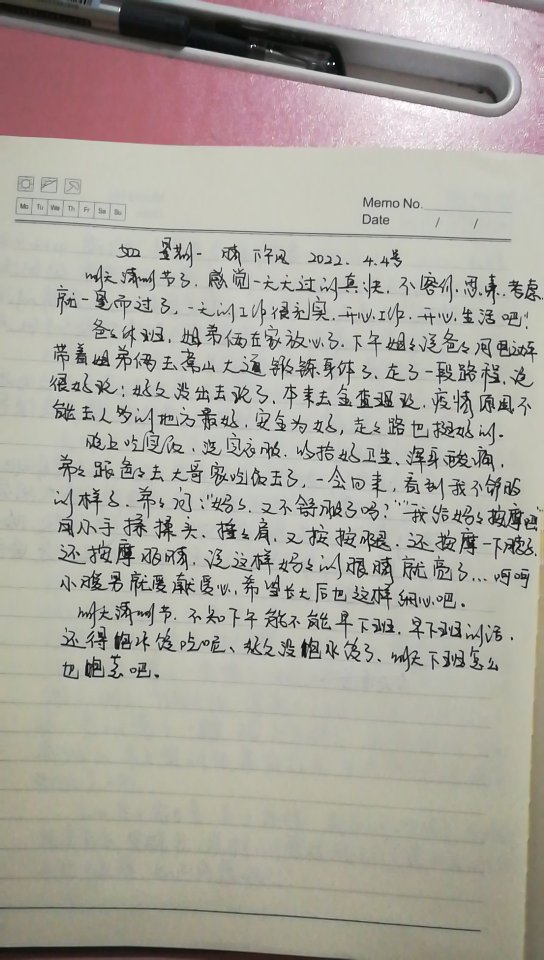 Memo No.
Mo Tu We Th Fr Sa Su
Date / /
502 星期一 晴 下午风 2022.4.4号
明天清明节了，感觉一天天过的真快，不容你思束、考虑
就一晃而过了，一天的工作很充实，开心工作，开心生活吧！
爸爸休班，姐弟俩在家放心了。下午姐姐说爸爸用电动车
带着姐弟俩去嵩山大道锻练身体了，走了一段路程，说
很好玩；好久没出去玩了，本来去金查理玩，疫情原因不
能去人多的地方最好，安全为好，走走路也挺好的。
晚上吃完饭，洗完衣服，收拾好卫生，浑身酸痛，
弟弟跟爸爸去大哥家吃饭去了，一会回来，看到我不舒服
的样子，弟弟问：“妈妈，又不舒服了吗？”“我给妈妈按摩吧”
用小手揉揉头，捶捶肩，又按按腿，还按摩一下腰
还按摩眼睛，说这样妈妈的眼睛就亮了…呵呵
小暖男就爱献爱心，希望长大后也这样细心吧。
明天清明节，不知下午能不能早下班，早下班的话，
还得包水饺吃呢，好久没包水饺了，明天下班怎么
也包煮吧。